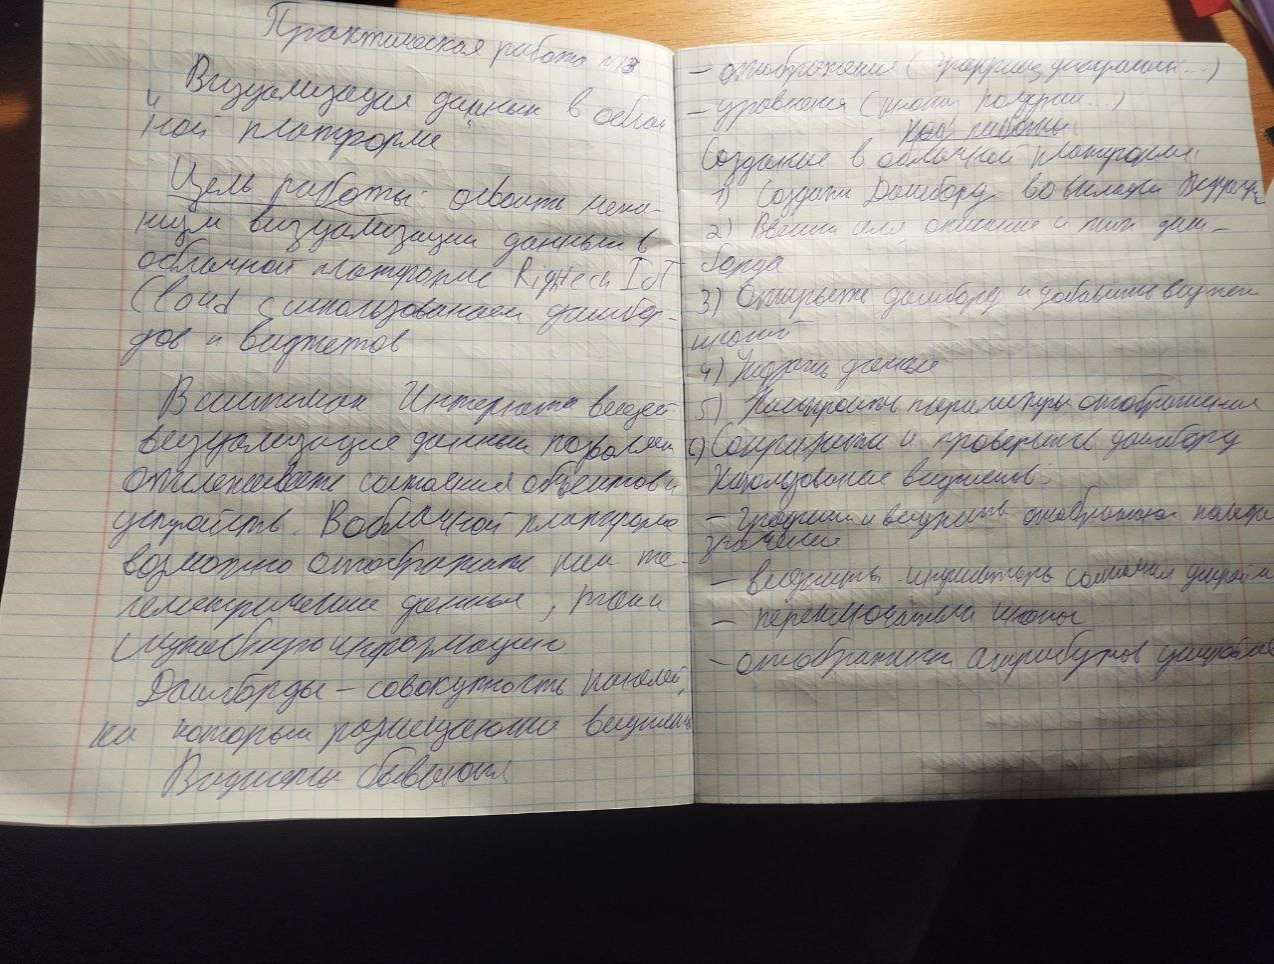 Практическая работа №13
Визуализация данных в облач
"ной платформе"
Цель работы: освоить меха-
низм визуализации данных в
облачной платформе Rightech IoT
Cloud с использованием дашбор-
дов и виджетов
В системах Интернета вещей
визуализация данных позволяет
отслеживать состояния объектов и
устройств. В облачной платформе
возможно отображать как те-
леметрические данные, так и
служебную информацию
Дашборды – совокупность панелей,
на которых размещаются виджеты
Виджеты бывают
– отображения (графики, диаграммы...)
– управления (кнопки, ...)
Ход работы
Создание в облачной платформе:
1) Создать Дашборд во вкладке
2) Ввести имя, описание и тип даш-
борда
3) Открыть дашборд и добавить виджет
4) данные
5) Настроить параметры отображения
6) Сохранить и проверить дашборд
Использование виджетов:
– графики и виджеты отображения
значение
– виджеты-индикаторы состояния
– переключатели кнопы
– отображения атрибутов устройства